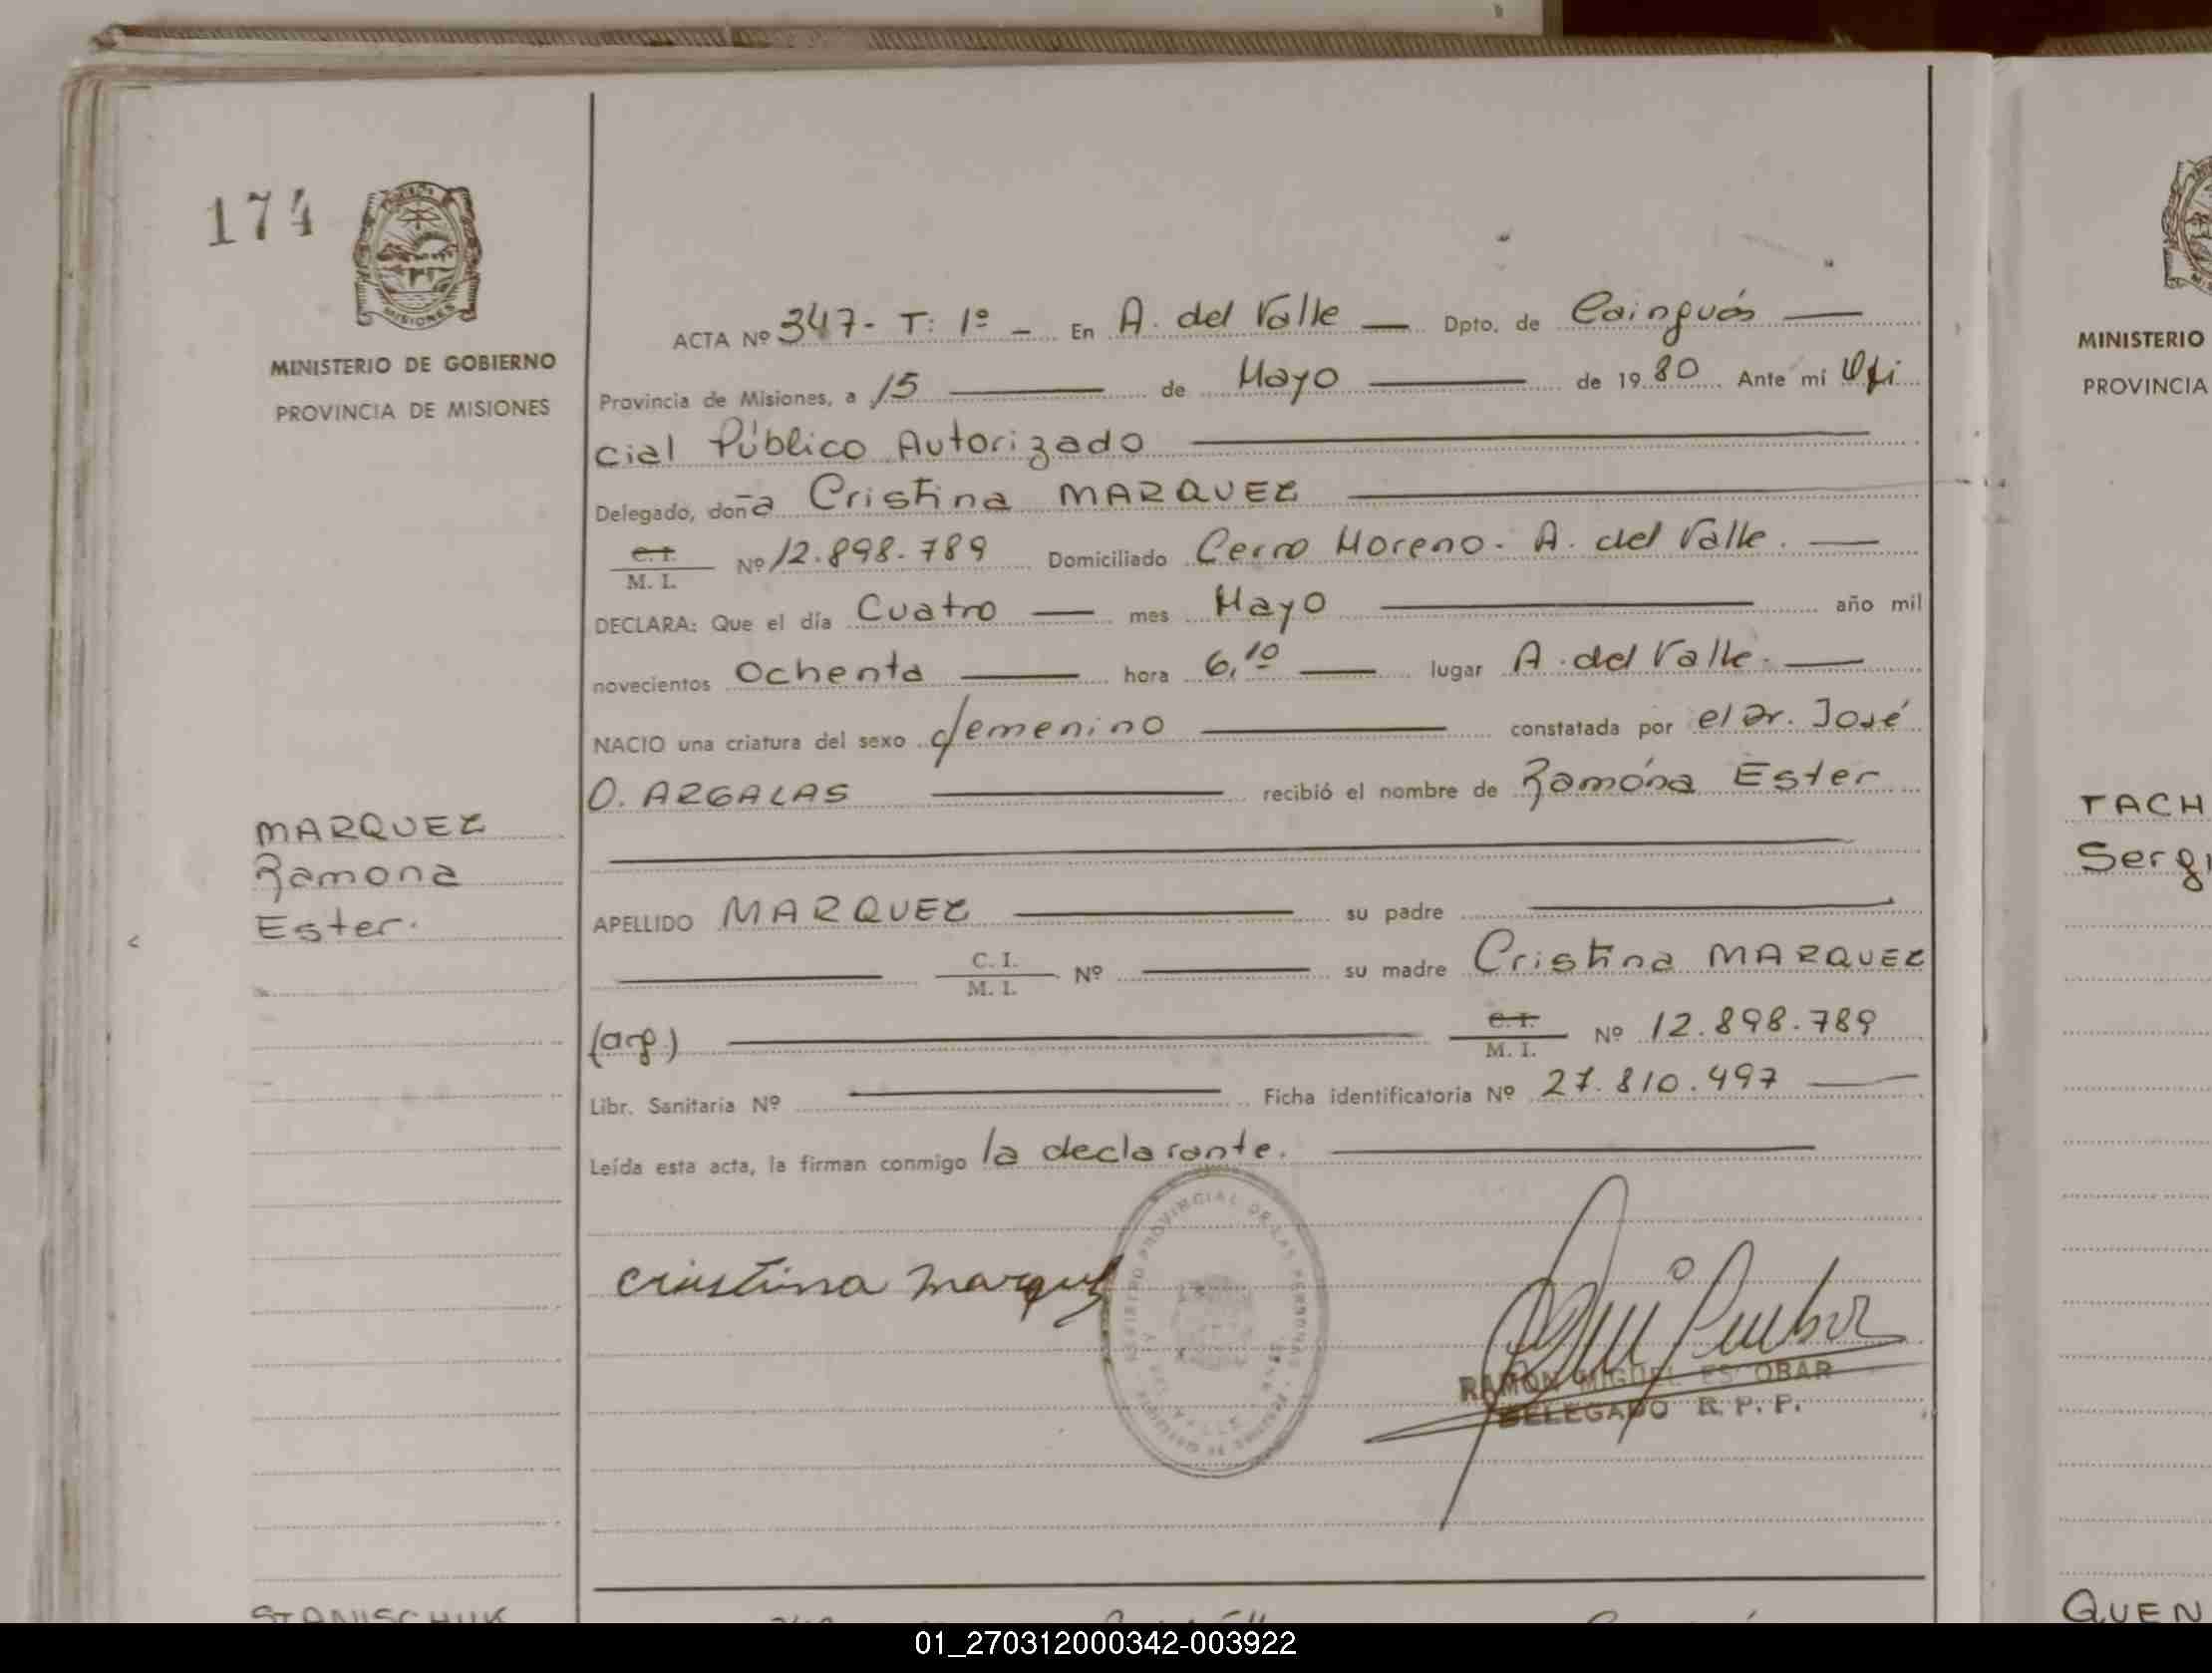 174
MISIONES
MINISTERIO DE GOBIERNO
PROVINCIA DE MISIONES
MARQUEZ
Ramona
Ester.
ACTA Nº 347- T: 1º - En A. del Valle — Dpto. de Cainguás —
Provincia de Misiones, a 15 — de Mayo — de 19 80 Ante mí Ofi
cial Público Autorizado —
Delegado, doña Cristina MARQUEZ —
C. I. / M. I. Nº 12.898.789 Domiciliado Cerro Moreno. A. del Valle. —
DECLARA: Que el día Cuatro — mes Mayo — año mil
novecientos Ochenta — hora 6,10 — lugar A. del Valle. —
NACIO una criatura del sexo femenino — constatada por el Dr. José
O. ARGALAS — recibió el nombre de Ramóna Ester
APELLIDO MARQUEZ — su padre —
— C. I. / M. I. Nº — su madre Cristina MARQUEZ
(arg.) — C. I. / M. I. Nº 12.898.789
Libr. Sanitaria Nº — Ficha identificatoria Nº 27.810.497 —
Leída esta acta, la firman conmigo la declarante. —
cristina marquez
REGISTRO PROVINCIAL DE LAS PERSONAS
RAMON MIGUEL ESCOBAR
DELEGADO R. P. P.
STANISCHUK
MINISTERIO
PROVINCIA
TACH
Sergi
QUEN
01_270312000342-003922